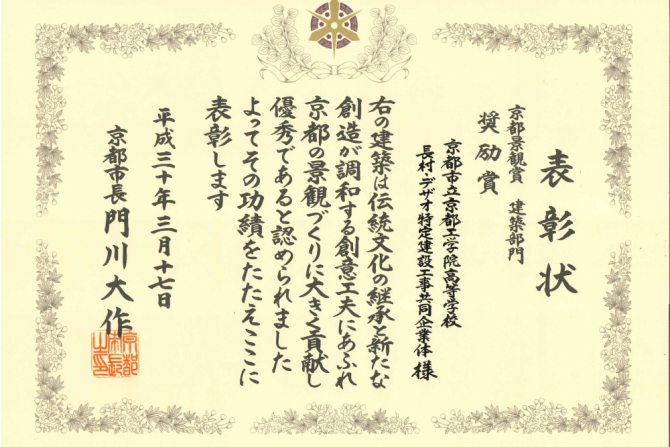 表彰状
京都景観賞 建築部門
奨励賞
京都市立京都工学院高等学校
長村・デザオ特定建設工事共同企業体 様
右の建築は伝統文化の継承と新たな
創造が調和する創意工夫にあふれ
京都の景観づくりに大きく貢献し
優秀であると認められました
よってその功績をたたえここに
表彰します
平成三十年三月十七日
京都市長 門川大作
京都市長之印